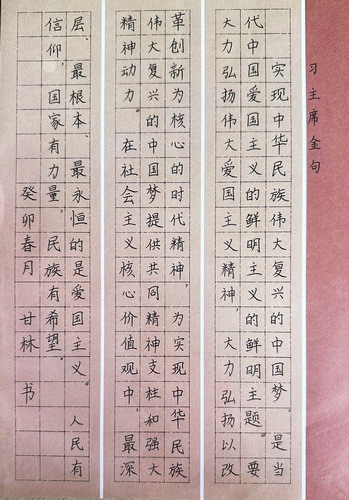 习主席金句
实现中华民族伟大复兴的中国梦，是当
代中国爱国主义的鲜明主义的鲜明主题。要
大力弘扬伟大爱国主义精神，大力弘扬以改
革创新为核心的时代精神，为实现中华民族
伟大复兴的中国梦提供共同精神支柱和强大
精神动力。在社会主义核心价值观中，最深
层、最根本、最永恒的是爱国主义。人民有
信仰，国家有力量，民族有希望。
癸卯春月 甘林 书